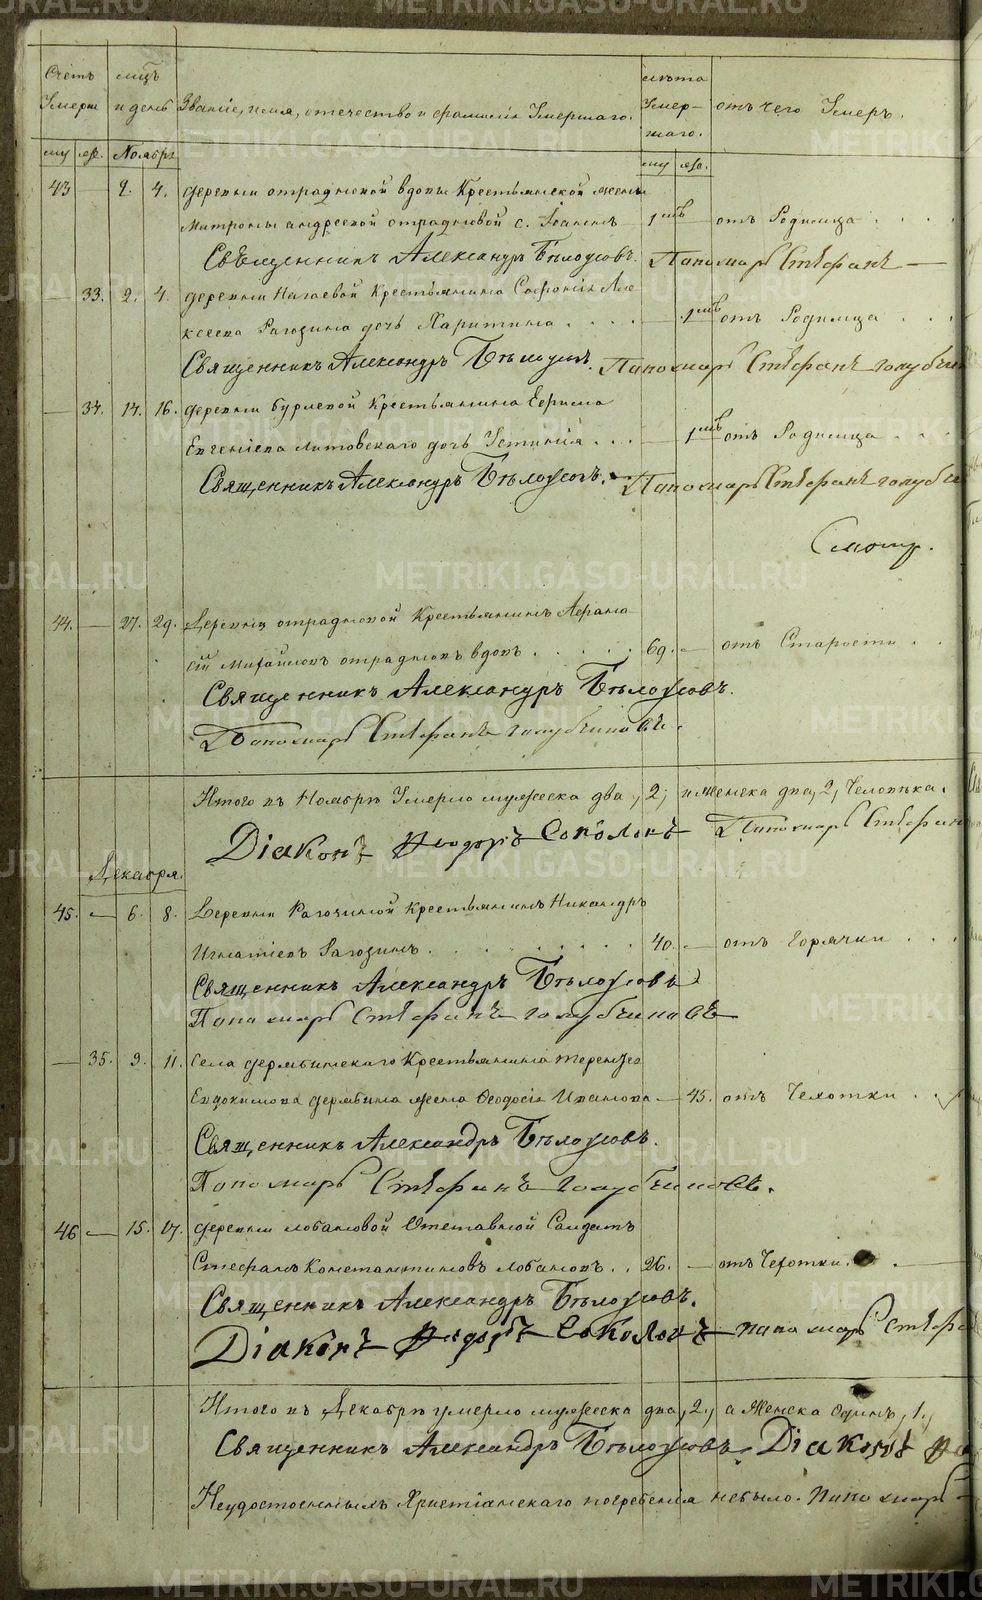 METRIKI.GASO-URAL.RU
Счетъ
Умерш
мцъ
и день
Званіе, имя, отечество и фамилія Умершаго.
лѣта
Умер-
шаго.
отъ чего Умеръ.
му жен. Ноябрь му жен.
43 — 2. 4. деревни отрадновой вдовы Крестьянской жены
Матроны андреевой отрадновой с. Іоаннъ 1 мцъ — отъ Родимца . . .
Священникъ Александръ Бѣлоусовъ. Пономарь Стефанъ —
— 33. 2. 4. деревни Нагаевой Крестьянина Софонія Але
ксеева Рагозина дочь Харитина . . . . — 1 мцъ отъ Родимца . . .
Священникъ Александръ Бѣлоусовъ. Пономарь Стефанъ голубчи
— 34. 14. 16. деревни бурлевой Крестьянина Ефрима
Евгеніева литовскаго дочь Устинія . . . — 1 мцъ отъ Родимца . . .
Священникъ Александръ Бѣлоусовъ. Пономарь Стефанъ голубчи
Смотр.
44. — 27. 29. Деревни отрадновой Крестьянинъ Афана
сій Михайловъ отрадновъ вдовъ . . . . . 69. — отъ Старости . .
Священникъ Александръ Бѣлоусовъ.
Пономарь Стефанъ голубчиковъ.
Итого въ Ноябрѣ Умерло мужеска два, 2, и женска два, 2, Человѣка.
Діаконъ Ѳеодоръ Соколовъ Пономарь Стефан
Декабря.
45. — 6. 8. Деревни Рагозиной Крестьянинъ Никандръ
Игнатіевъ Рагозинъ . . . . . . . 40. — отъ Горячки . . .
Священникъ Александръ Бѣлоусовъ
Пономарь Стефанъ голубчиковъ
— 35. 9. 11. Села дербинскаго Крестьянина терентія
Евдокимова дербина жена Феодосія Иванова — 45. отъ Чехотки . .
Священникъ Александръ Бѣлоусовъ.
Пономарь Стефанъ голубчиковъ.
46 — 15. 17. деревни лобановой Отставной Салдатъ
Стефанъ Константиновъ лобановъ . . 26. — отъ Чехотки. —
Священникъ Александръ Бѣлоусовъ.
Діаконъ Ѳеодоръ Соколовъ пономарь Стефа
Итого въ Декабрѣ умерло мужеска два, 2, а женска Одинъ, 1,
Священникъ Александръ Бѣлоусовъ. Діаконъ
Неудостоенныхъ Христіанскаго погребенія небыло. Пономарь